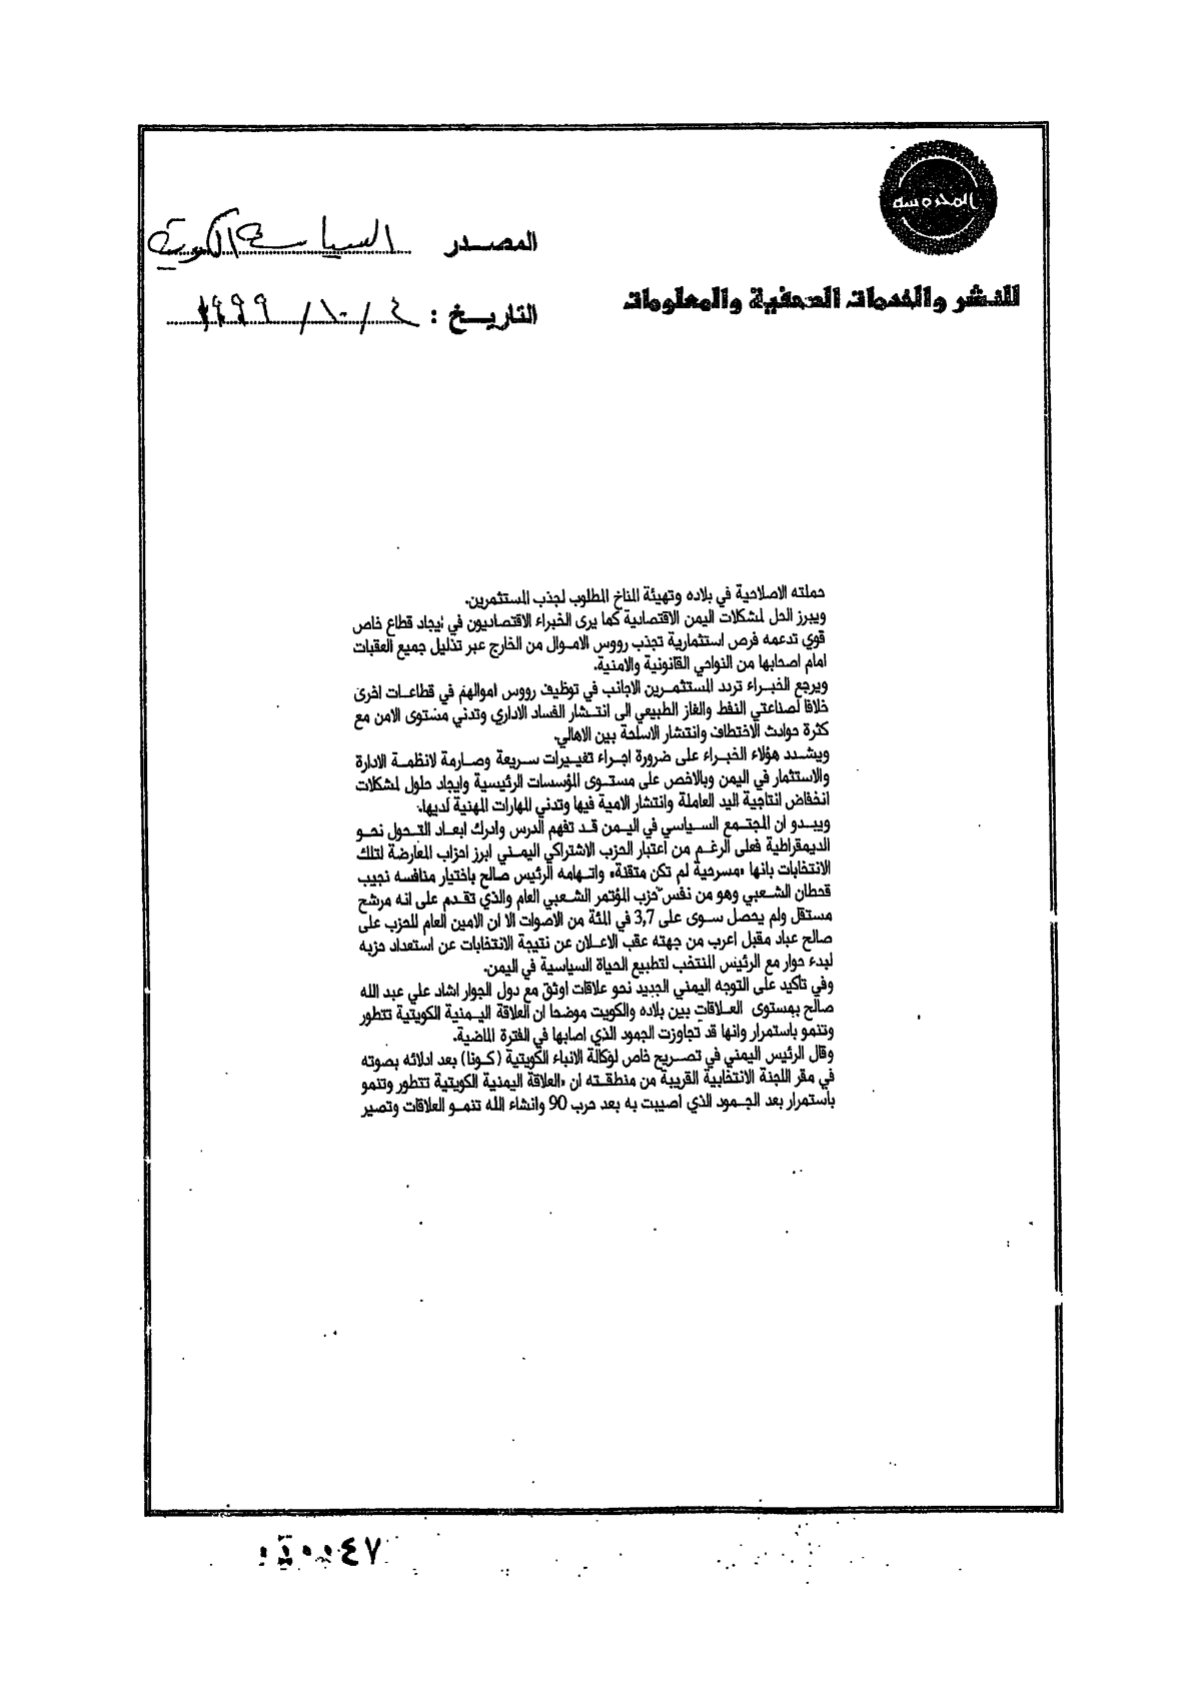 المحروسة
للنشر والخدمات الصحفية والمعلومات
المصدر السياسة الكويتية
التاريخ : ٤ / ١٠ / ١٩٩٩
حملته الاصلاحية في بلاده وتهيئة المناخ المطلوب لجذب المستثمرين.
ويبرز الحل لمشكلات اليمن الاقتصادية كما يرى الخبراء الاقتصاديون في ايجاد قطاع خاص
قوي تدعمه فرص استثمارية تجذب رووس الاموال من الخارج عبر تذليل جميع العقبات
امام اصحابها من النواحي القانونية والامنية.
ويرجع الخبراء تردد المستثمرين الاجانب في توظيف رووس اموالهم في قطاعات اخرى
خلافا لصناعتي النفط والغاز الطبيعي الى انتشار الفساد الاداري وتدني مستوى الامن مع
كثرة حوادث الاختطاف وانتشار الاسلحة بين الاهالي.
ويشدد هؤلاء الخبراء على ضرورة اجراء تغييرات سريعة وصارمة لانظمة الادارة
والاستثمار في اليمن وبالاخص على مستوى المؤسسات الرئيسية وايجاد حلول لمشكلات
انخفاض انتاجية اليد العاملة وانتشار الامية فيها وتدني المهارات المهنية لديها.
ويبدو ان المجتمع السياسي في اليمن قد تفهم الدرس وادرك ابعاد التحول نحو
الديمقراطية فعلى الرغم من اعتبار الحزب الاشتراكي اليمني ابرز احزاب المعارضة لتلك
الانتخابات بانها «مسرحية لم تكن متقنة» واتهامه الرئيس صالح باختيار منافسه نجيب
قحطان الشعبي وهو من نفس حزب المؤتمر الشعبي العام والذي تقدم على انه مرشح
مستقل ولم يحصل سوى على 3,7 في المئة من الاصوات الا ان الامين العام للحزب على
صالح عباد مقبل اعرب من جهته عقب الاعلان عن نتيجة الانتخابات عن استعداد حزبه
لبدء حوار مع الرئيس المنتخب لتطبيع الحياة السياسية في اليمن.
وفي تاكيد على التوجه اليمني الجديد نحو علاقات اوثق مع دول الجوار اشاد علي عبد الله
صالح بمستوى العلاقات بين بلاده والكويت موضحا ان العلاقة اليمنية الكويتية تتطور
وتنمو باستمرار وانها قد تجاوزت الجمود الذي اصابها في الفترة الماضية.
وقال الرئيس اليمني في تصريح خاص لوكالة الانباء الكويتية (كونا) بعد ادلائه بصوته
في مقر اللجنة الانتخابية القريبة من منطقته ان «العلاقة اليمنية الكويتية تتطور وتنمو
باستمرار بعد الجمود الذي اصيبت به بعد حرب 90 وانشاء الله تنمو العلاقات وتصير